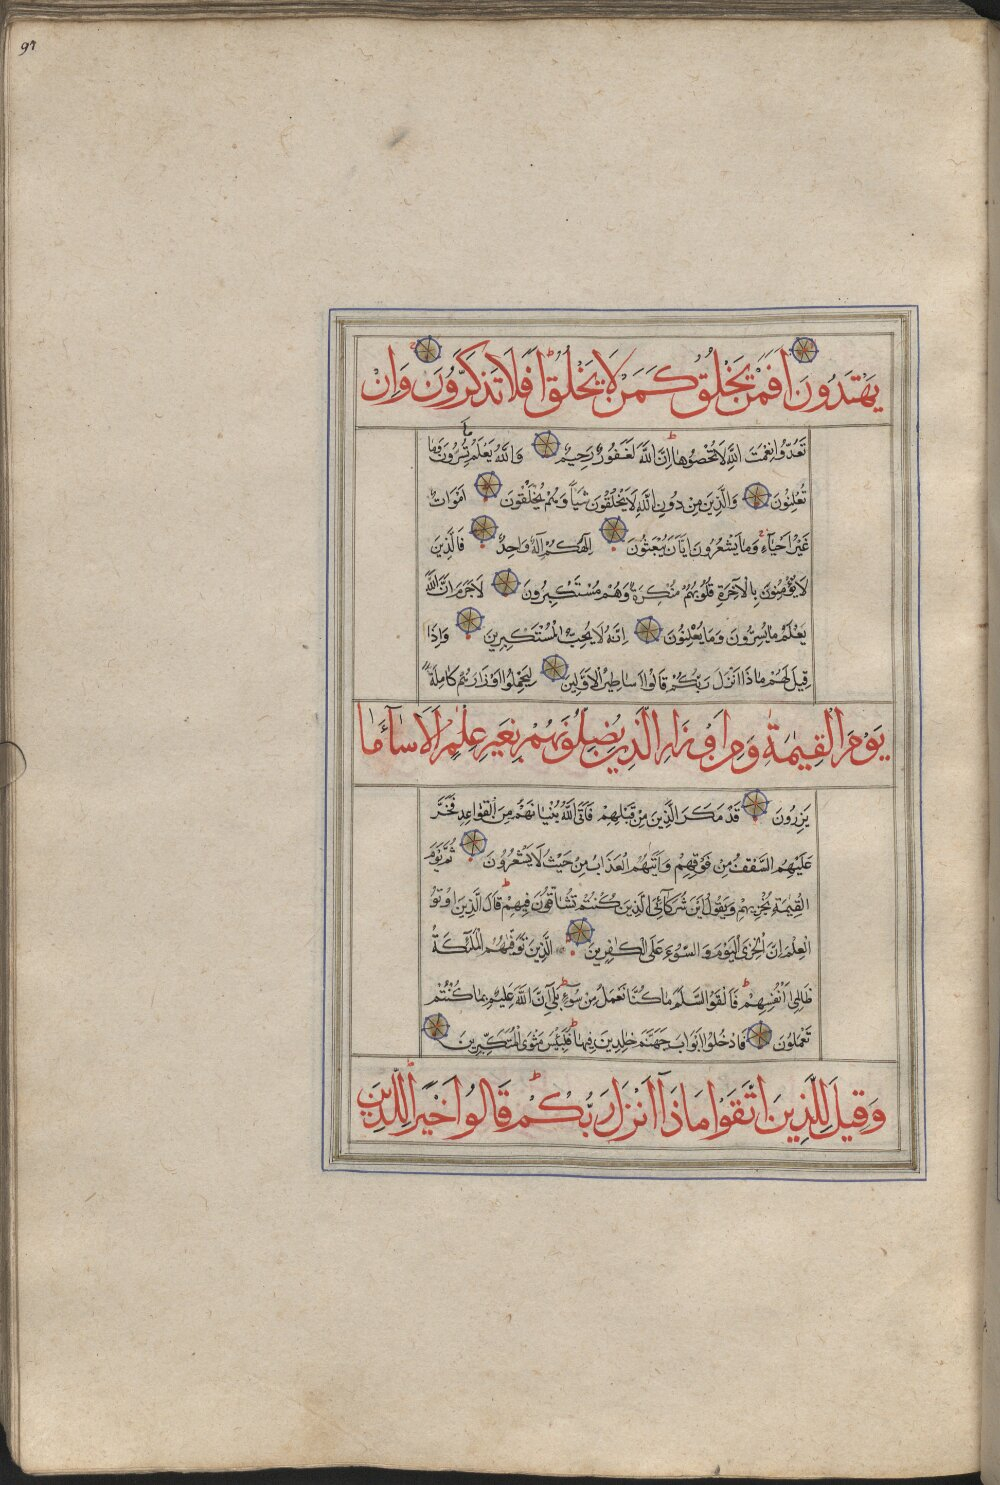 97
يَهْتَدُونَ اَفَمَنْ يَخْلُقُ كَمَنْ لَا يَخْلُقُ اَفَلَا تَذَكَّرُونَ وَاِنْ
تَعُدُّوا نِعْمَتَ اللّٰهِ لَا تُحْصُوهَا اِنَّ اللّٰهَ لَغَفُورٌ رَحِيمٌ وَاللّٰهُ يَعْلَمُ مَا تُسِرُّونَ وَمَا
تُعْلِنُونَ وَالَّذِينَ مِنْ دُونِ اللّٰهِ لَا يَخْلُقُونَ شَيْاً وَهُمْ يُخْلَقُونَ اَمْوَاتٌ
غَيْرُ اَحْيَآءٍ وَمَا يَشْعُرُونَ اَيَّانَ يُبْعَثُونَ اِلٰهُكُمْ اِلٰهٌ وَاحِدٌ فَالَّذِينَ
لَا يُؤْمِنُونَ بِالْاٰخِرَةِ قُلُوبُهُمْ مُنْكِرَةٌ وَهُمْ مُسْتَكْبِرُونَ لَا جَرَمَ اَنَّ اللّٰهَ
يَعْلَمُ مَا يُسِرُّونَ وَمَا يُعْلِنُونَ اِنَّهُ لَا يُحِبُّ الْمُسْتَكْبِرِينَ وَاِذَا
قِيلَ لَهُمْ مَاذَا اَنْزَلَ رَبُّكُمْ قَالُوا اَسَاطِيرُ الْاَوَّلِينَ لِيَحْمِلُوا اَوْزَارَهُمْ كَامِلَةً
يَوْمَ الْقِيٰمَةِ وَمِنْ اَوْزَارِ الَّذِينَ يُضِلُّونَهُمْ بِغَيْرِ عِلْمٍ اَلَا سَآءَ مَا
يَزِرُونَ قَدْ مَكَرَ الَّذِينَ مِنْ قَبْلِهِمْ فَاَتَى اللّٰهُ بُنْيَانَهُمْ مِنَ الْقَوَاعِدِ فَخَرَّ
عَلَيْهِمُ السَّقْفُ مِنْ فَوْقِهِمْ وَاَتٰيهُمُ الْعَذَابُ مِنْ حَيْثُ لَا يَشْعُرُونَ ثُمَّ يَوْمَ
الْقِيٰمَةِ يُخْزِيهِمْ وَيَقُولُ اَيْنَ شُرَكَآئِيَ الَّذِينَ كُنْتُمْ تُشَاقُّونَ فِيهِمْ قَالَ الَّذِينَ اُوتُوا
الْعِلْمَ اِنَّ الْخِزْيَ الْيَوْمَ وَالسُّوٓءَ عَلَى الْكَافِرِينَ اَلَّذِينَ تَتَوَفّٰيهُمُ الْمَلٰٓئِكَةُ
ظَالِمِي اَنْفُسِهِمْ فَاَلْقَوُا السَّلَمَ مَا كُنَّا نَعْمَلُ مِنْ سُوٓءٍ بَلٰٓى اِنَّ اللّٰهَ عَلِيمٌ بِمَا كُنْتُمْ
تَعْمَلُونَ فَادْخُلُوا اَبْوَابَ جَهَنَّمَ خَالِدِينَ فِيهَا فَلَبِئْسَ مَثْوَى الْمُتَكَبِّرِينَ
وَقِيلَ لِلَّذِينَ اتَّقَوْا مَاذَآ اَنْزَلَ رَبُّكُمْ قَالُوا خَيْرًا لِلَّذِينَ